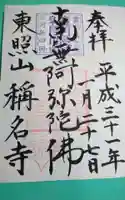 奉拝
平成三十一年
一月二十七日
南無阿弥陀佛
東照山 稱名寺